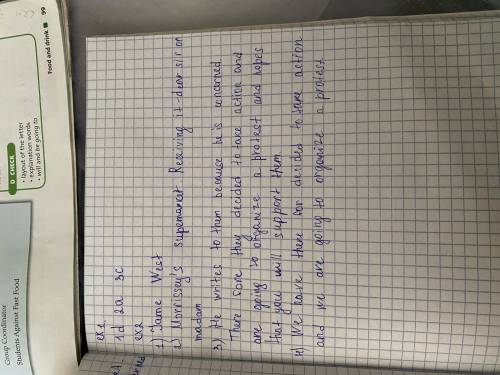 Group Coordinator
Students Against Fast Food
D CHECK
• layout of the letter
• explanation words
• will and be going to
Food and drink ■ 99
ex1
1d 2a 3c
ex2
1) Jame West
2) Morrissey's supemarket. Receiving it-dear sir or
madam
3) He writes to them because he is concerned.
There fore they decided to take action and
are going to organize a protest and hopes
that you will support them.
4) We have there for decided to take action
and we are going to organize a protest.